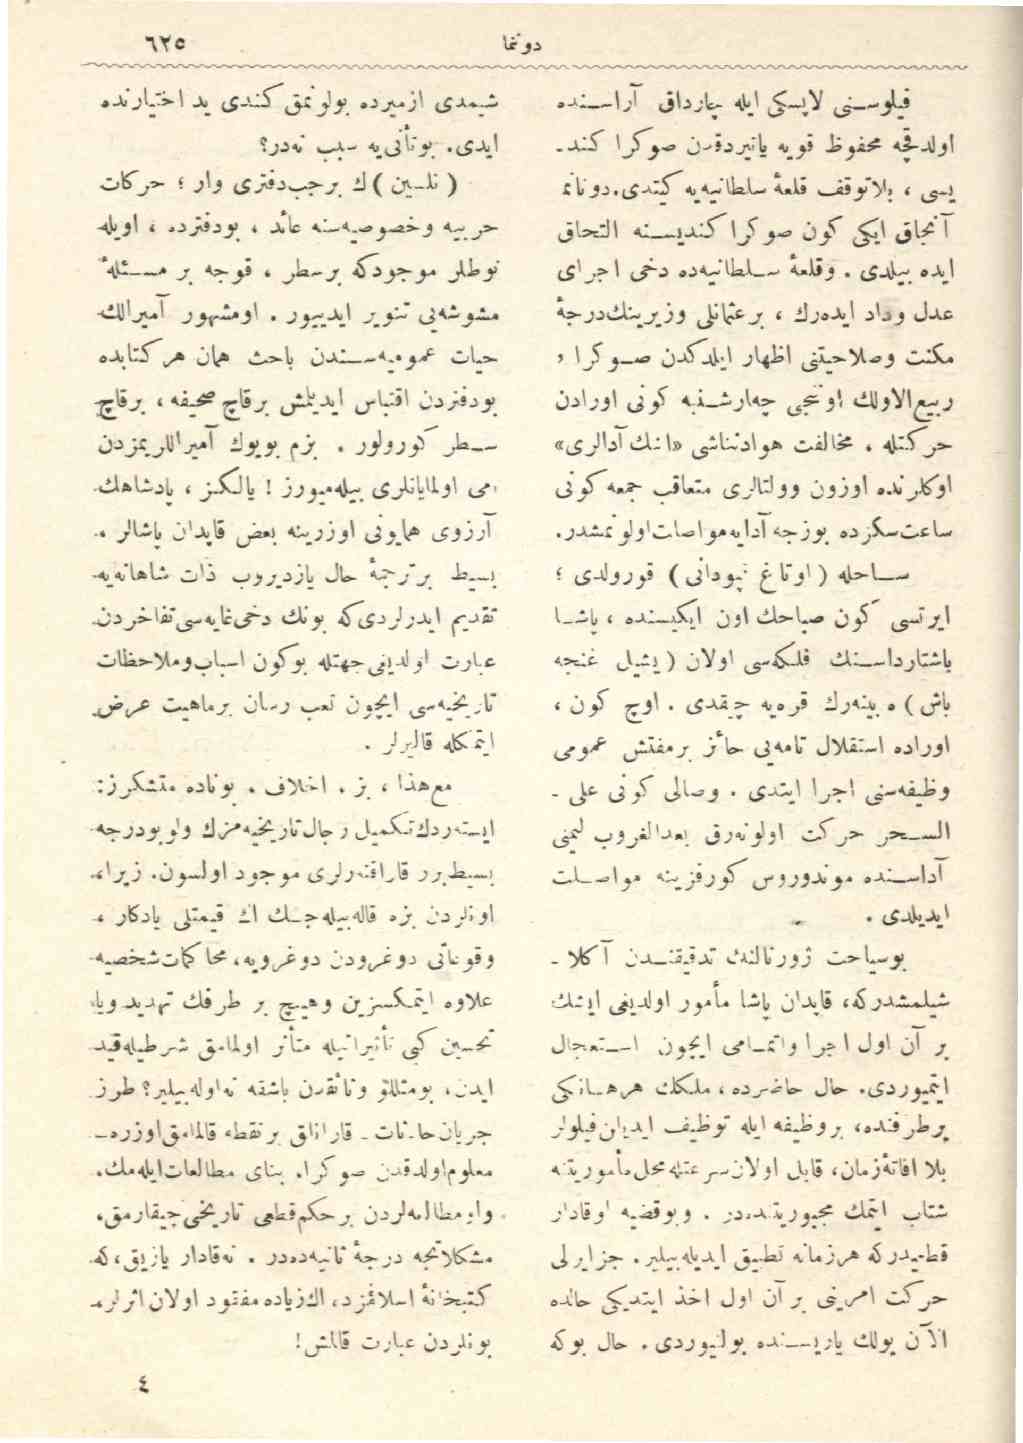 دوننما
٦٢٥
فیلوسنی لاپسکی ایله چارداق آراسنده
اولدقجه محفوظ قویه یاتیردقدن صوکرا کند-
یسی ، بلاتوقف قلعهٔ سلطانیه‌یه کیتدی. دوننما
آنجاق ایکی کون صوکرا کندیسنه التحاق
ایده بیلدی . وقلعهٔ سلطانیه‌ده دخی اجرای
عدل وداد ایده‌رك ، بر عثمانلی وزیرینك درجهٔ
مکنت وصلاحیتنی اظهار ایلدکدن صوکرا ,
ربیع‌الاولك اوننجی چهارشنبه کونی اورادن
حرکتله ، مخالفت هوادنناشی «انك آدالری»
اوکلرنده اوزون وولتالری متعاقب جمعه کونی
ساعت سکزده بوزجه آدایه مواصلت اولونمشدر.
ساحله (اوتاغ قپودانی) قورولدی ؛
ایرتسی کون صباحك اون ایکیسنده ، پاشا
باشتارداسنك فلکه‌سی اولان (یشیل غنجه
باش) ه بینه‌رك قره‌یه چیقدی . اوچ کون ،
اوراده استقلال تامه‌یی حائز بر مفتش عمومی
وظیفه‌سنی اجرا ایتدی . وصالی کونی علی -
السحر حرکت اولونه‌رق بعدالغروب لیمنی
آداسنده موندوروس کورفزینه مواصلت
ایدیلدی .
بوسیاحت ژورنالنك تدقیقندن آکلا -
شیلمشدرکه، قاپدان پاشا مأمور اولدیغی ایشك
بر آن اول اجرا واتمامی ایچون استعجال
ایتمیوردی. حال حاضرده ، ملکك هرهانکی
برطرفنده، بروظیفه ایله توظیف ایدیلن فیلولر
بلا افاتهٔ زمان، قابل اولان سرعتله محل مأموریتنه
شتاب ایتمك مجبوریتنده‌در . وبوقضیه اوقادار
قطعیدرکه هرزمانه تطبیق ایدیله بیلیر. جزایرلی
حرکت امرینی بر آن اول اخذ ایتدیکی حالده
الآن یولك یاریسنده بولنیوردی . حال بوکه
شیمدی ازمیرده بولونمق کندی ید اختیارنده
ایدی. بوتأنی‌یه سبب نه‌در؟
(نلسین) ك برجب‌دفتری وار ؛ حرکات
حربیه وخصوصیه‌سنه عائد ، بودفترده ، اویله
نوطلر موجودکه برسطر ، قوجه بر مسئلهٔ
مشوشه‌یی تنویر ایدییور . اومشهور آمیرالك
حیات عمومیه‌سندن باحث همان هر کتابده
بودفتردن اقتباس ایدیلمش برقاچ صحیفه ، برقاچ
سطر کورولور . بزم بویوك آمیراللریمزدن
امی اولمایانلری بیله‌میورز ! یالکز ، پادشاهك
آرزوی همایونی اوزرینه بعض قاپدان پاشالر ،
بسیط برترجمهٔ حال یازدیروب ذات شاهانه‌یه
تقدیم ایدرلردی که بونك دخی غایه‌سی تفاخردن
عبارت اولدیغی جهتله بوکون اسباب وملاحظات
تاریخیه‌سی ایچون تعب رسان برماهیت عرض
ایتمکله قالیرلر .
مع‌هذا ، بز ، اخلاف ، بوناده متشکرز:
ایسته‌ردك تکمیل رجال تاریخیه‌مزك ولو بودرجه
بسیط برر قارالنه‌رلری موجود اولسون. زیرا،
اونلردن بزه قاله‌بیله‌جك اك قیمتلی یادکار ،
وقوعاتی دوغرودن دوغرویه، محاکمات شخصیه
علاوه ایتمکسزین وهیچ بر طرفك تهدید ویا
تحسین کبی تأثیراتیله متأثر اولمامق شرطیله قید
ایدن، بومثللو وثائقدن باشقه نه اوله بیلیر؟ طرز
جریان حادثات - قارانلق برنقطه قالمامق اوزره -
معلوم اولدقدن صوکرا. بنای مطالعات ایله‌مك،
واو مطالعه‌لردن بر حکم قطعی تاریخی چیقارمق،
مشکلاتجه درجهٔ ثانیه‌ده‌در . نه‌قادار یازیق، که
کتبخانهٔ اسلافمزده، اك زیاده مفقود اولان اثرلر،
بونلردن عبارت قالمش!
٤